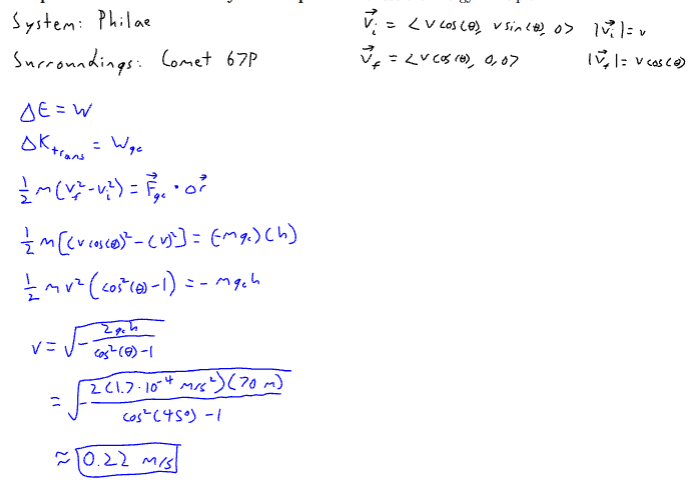 System: Philae
Surroundings: Comet 67P
v⃗ᵢ = <v cos(θ), v sin(θ), 0> |v⃗ᵢ| = v
v⃗_f = <v cos(θ), 0, 0> |v⃗_f| = v cos(θ)
ΔE = W
ΔK_trans = W_gc
½ m(v_f² - vᵢ²) = F⃗_gc • Δr⃗
½ m[(v cos(θ))² - (v)²] = (-m g_c)(h)
½ m v² (cos²(θ) - 1) = - m g_c h
v = √(- 2 g_c h / (cos²(θ) - 1))
= √(- 2(1.7·10⁻⁴ m/s²)(70 m) / (cos²(45°) - 1))
≈ 0.22 m/s